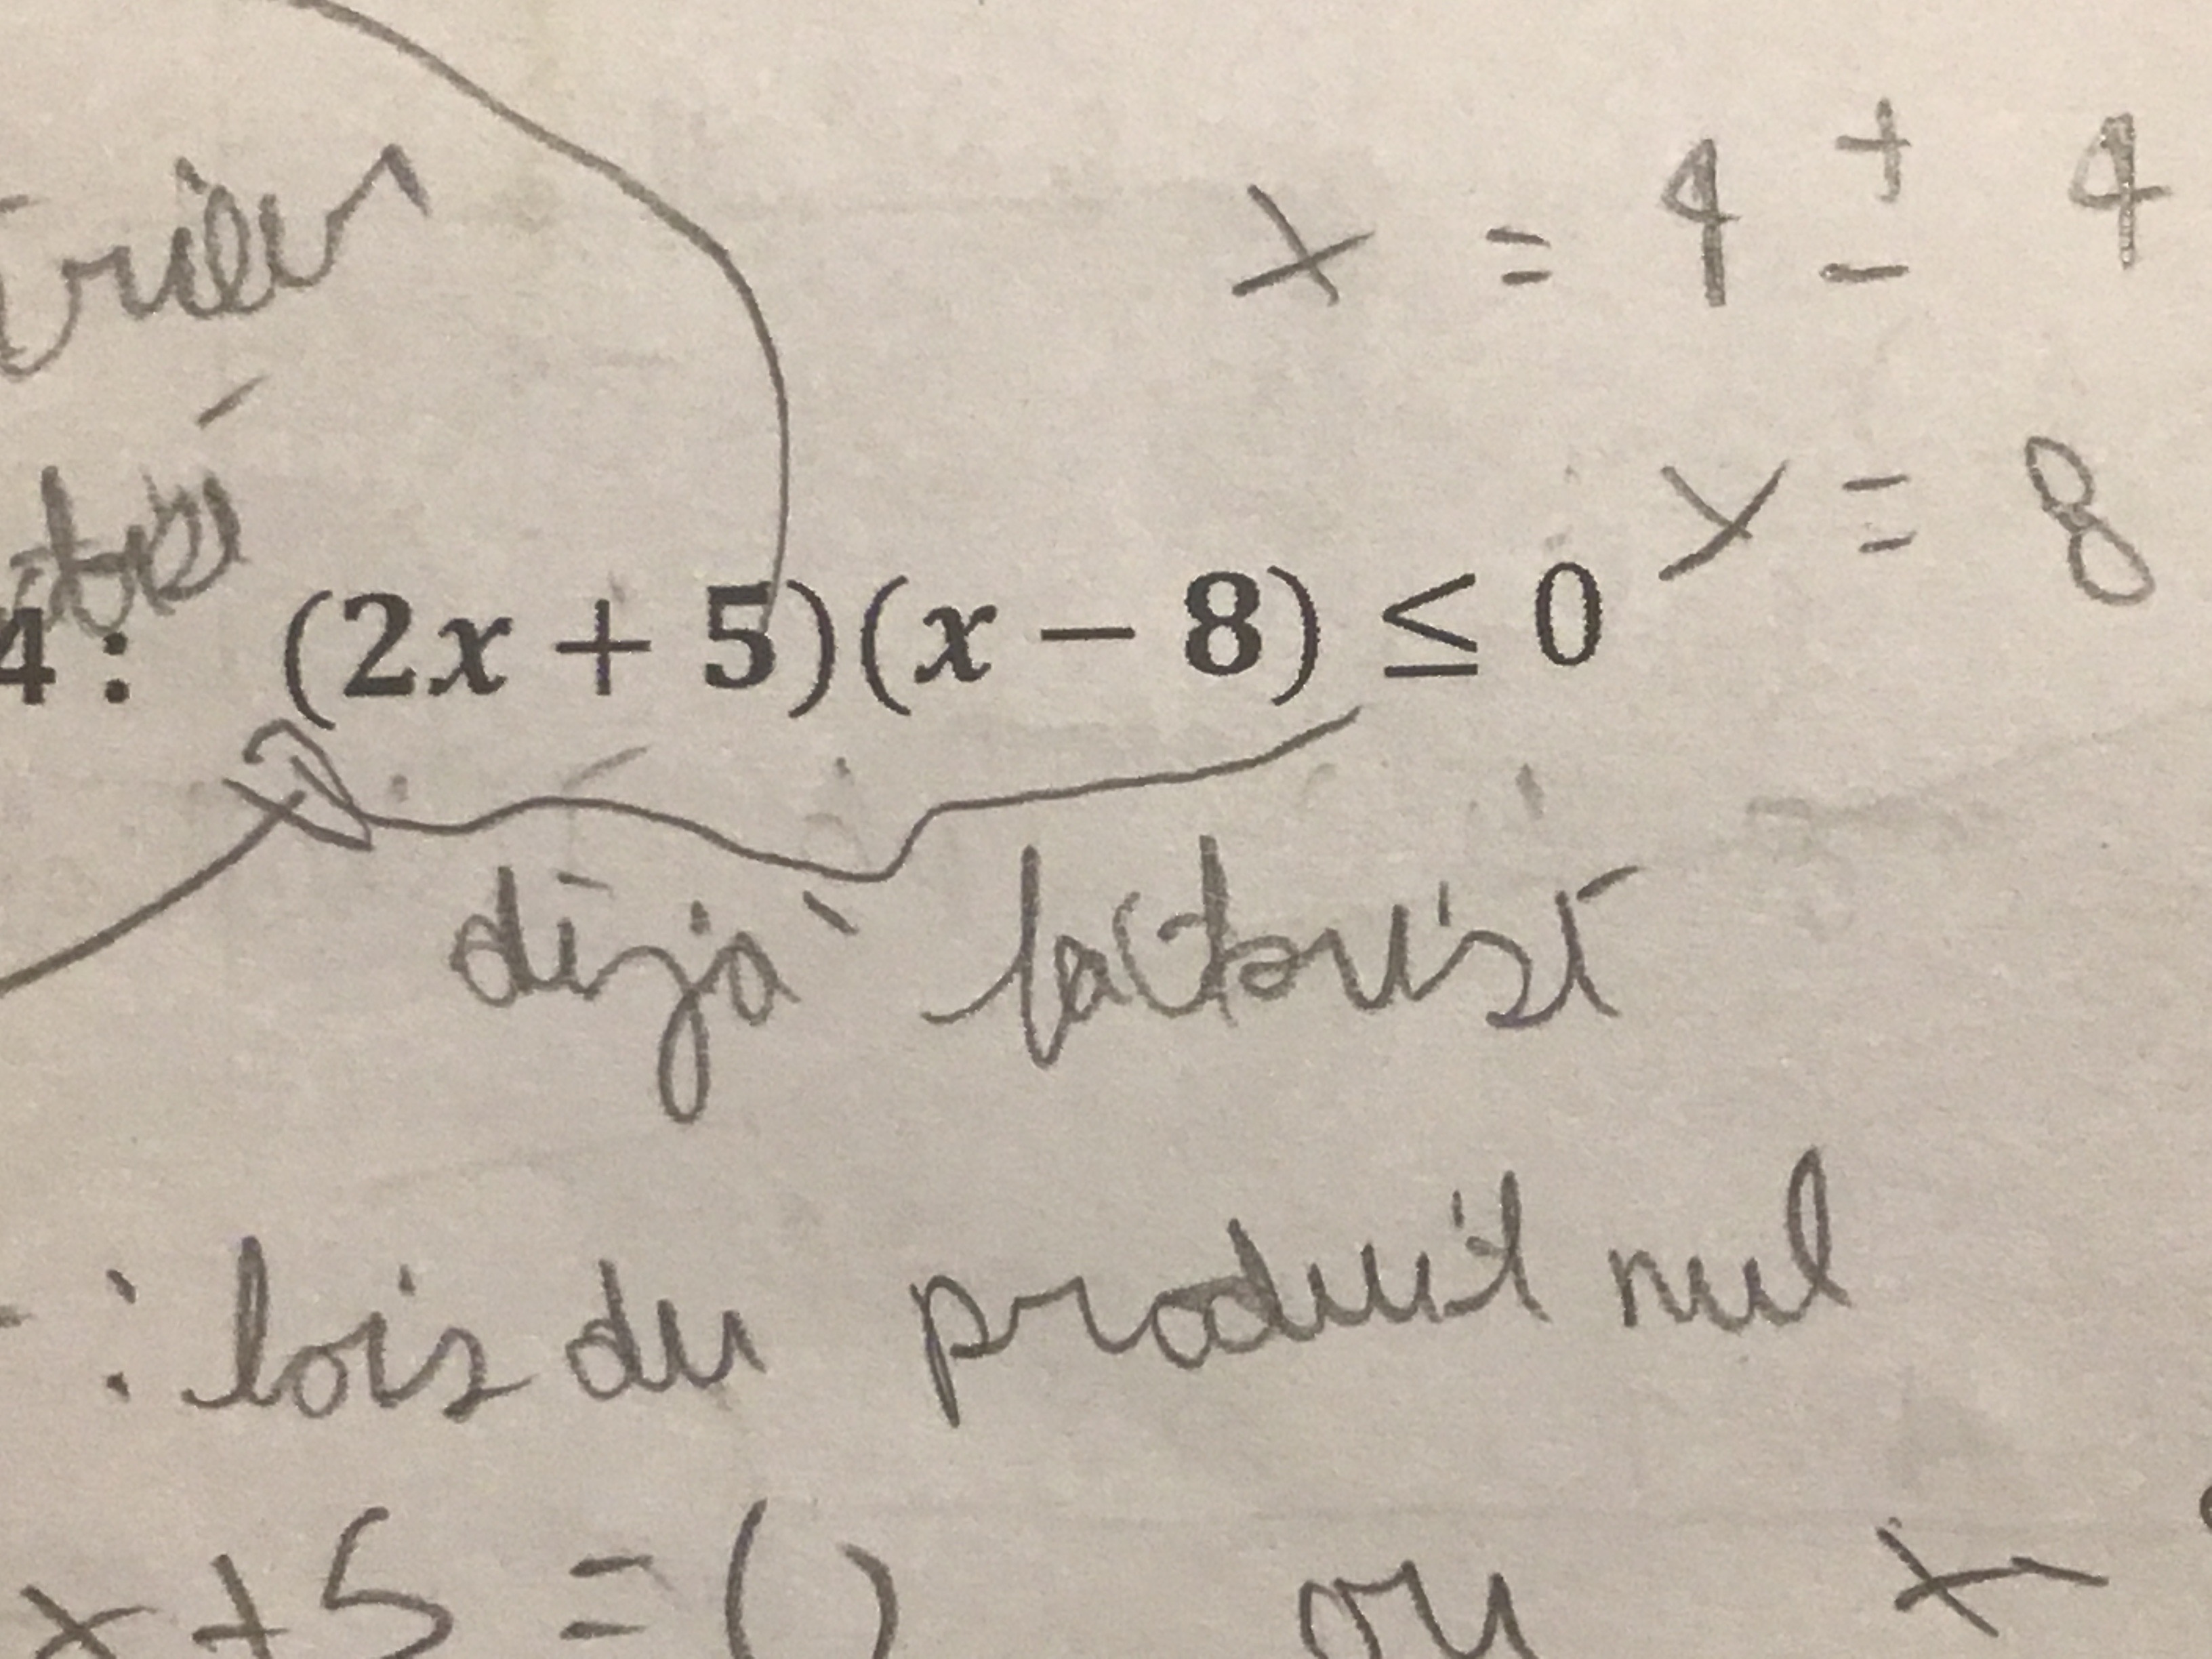 x = 4 ± 4
x = 8
4 : (2x + 5)(x − 8) ≤ 0
déjà factorisé
: lois du produit nul
x + 5 = 0 ou x −